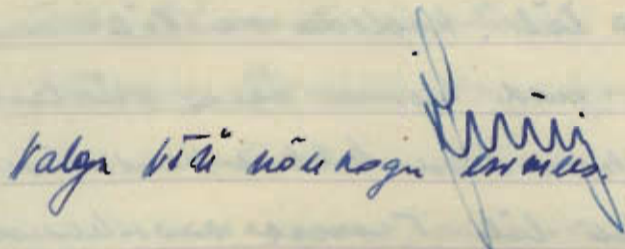 Valga VTÜ nõukogu esimees.